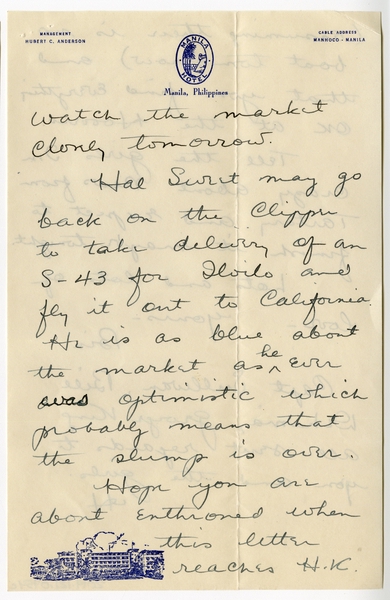 MANAGEMENT
HUBERT C. ANDERSON
MANILA HOTEL
Manila, Philippines
CABLE ADDRESS
MANHOCO - MANILA
watch the market
closely tomorrow.
Hal Swert may go
back on the Clipper
to take delivery of an
S-43 for Iloilo and
fly it out to California.
He is as blue about
the market as he ever
was optimistic which
probably means that
the slump is over.
Hope you are
about enthroned when
this letter
reaches H.K.